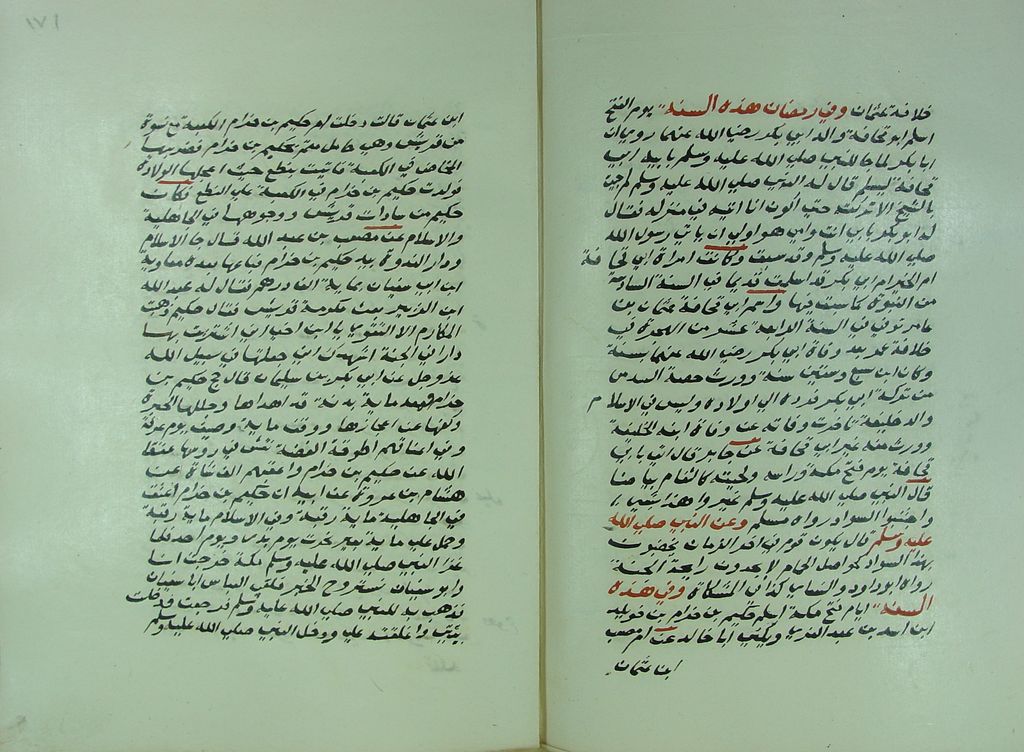 خلافة عثمان وفي رمضان هذه السنة يوم الفتح
اسلم ابو قحافة والد ابي بكر رضي الله عنهما روي ان
ابا بكر لما جا للنبي صلي الله عليه وسلم بابيه ابي
قحافة ليسلم قال له النبي صلي الله عليه وسلم لم جيت
بالشيخ الا تركته حتي اكون انا اتيه في منزله فقال
له ابو بكر بابي انت وامي هو اولي ان ياتي رسول الله
صلي الله عليه وسلم وقد سبقت وكانت امراة ابي قحافة
ام الخير ام ابي بكر قد اسلمت قديما في السنة السادسة
من النبوة كما سبت فيها واسم ابي قحافة عثمان بن
عامر توفي في السنة الرابعة عشر من الهجرة في
خلافة عمر بعد وفاة ابي بكر رضي الله عنهما بسنة
وكان ابن سبع وتسعين سنة وورث حصة السدس
من تركة ابي بكر فرده الي اولاده وليس في الاسلام
والد خليفة تاخرت وفاته عن وفاة ابنه الخليفة
وورث منه غير ابي قحافة عن جابر قال اتي بابي
قحافة يوم فتح مكة وراسه ولحيته كالثغام بياضا
قال النبي صلي الله عليه وسلم غيروا هذا بشي
واجتنبوا السواد رواه مسلم وعن النبي صلي الله
عليه وسلم قال يكون قوم في اخر الزمان يخضبون
بهذا السواد كحواصل الحمام لا يجدون رايحة الجنة
رواه ابو داود والنساي كذا في المشكاة وفي هذه
السنة ايام فتح مكة اسلم حكيم بن حزام بن خويلد
ابن اسد بن عبد العزي ويكني ابا خالد عن ام مصعب
ابن عثمان
١٧١
ابن عثمان قالت دخلت ام حكيم بن حزام الكعبة مع نسوة
من قريش وهي حامل متم بحكيم بن حزام فضربها
المخاض في الكعبة فاتيت بنطع حيث اعجلها الولادة
فولدت حكيم بن حزام في الكعبة علي النطع فكان
حكيم من سادات قريش ووجوهها في الجاهلية
والاسلام عن مصعب بن عبد الله قال جا الاسلام
ودار الندوة بيد حكيم بن حزام فباعها بعده معاوية
ابن ابي سفيان بماية الف درهم فقال له عبد الله
ابن الزبير بعت مكرمة قريش فقال حكيم ذهبت
المكارم الا التقوي يا ابن اخي اني اشتريت بها
دارا في الجنة اشهدك اني جعلتها في سبيل الله
عز وجل عن ابي بكر بن سليمان قال حج حكيم بن
حزام معه ماية بدنة قد اهداها وجللها الحبرة
وكفها عن اعجازها ووقف ماية وصيف يوم عرفة
وفي اعناقهم اطوقة الفضة نقش في روسها عتقا
الله عن حكيم بن حزام واعتقهم الف شاة عن
هشام بن عروة عن ابيه ان حكيم بن حزام اعتق
في الجاهلية ماية رقبة وفي الاسلام ماية رقبة
وحمل علي ماية بعير نجوت يوم بدر ويوم احد فلما
غزا النبي صلي الله عليه وسلم مكة خرجت انا
وابو سفيان نستروح الخبر فلقي العباس ابا سفيان
فذهب به للنبي صلي الله عليه وسلم فرجعت ودخلت
بيتي واغلقته علي ودخل النبي صلي الله عليه وسلم